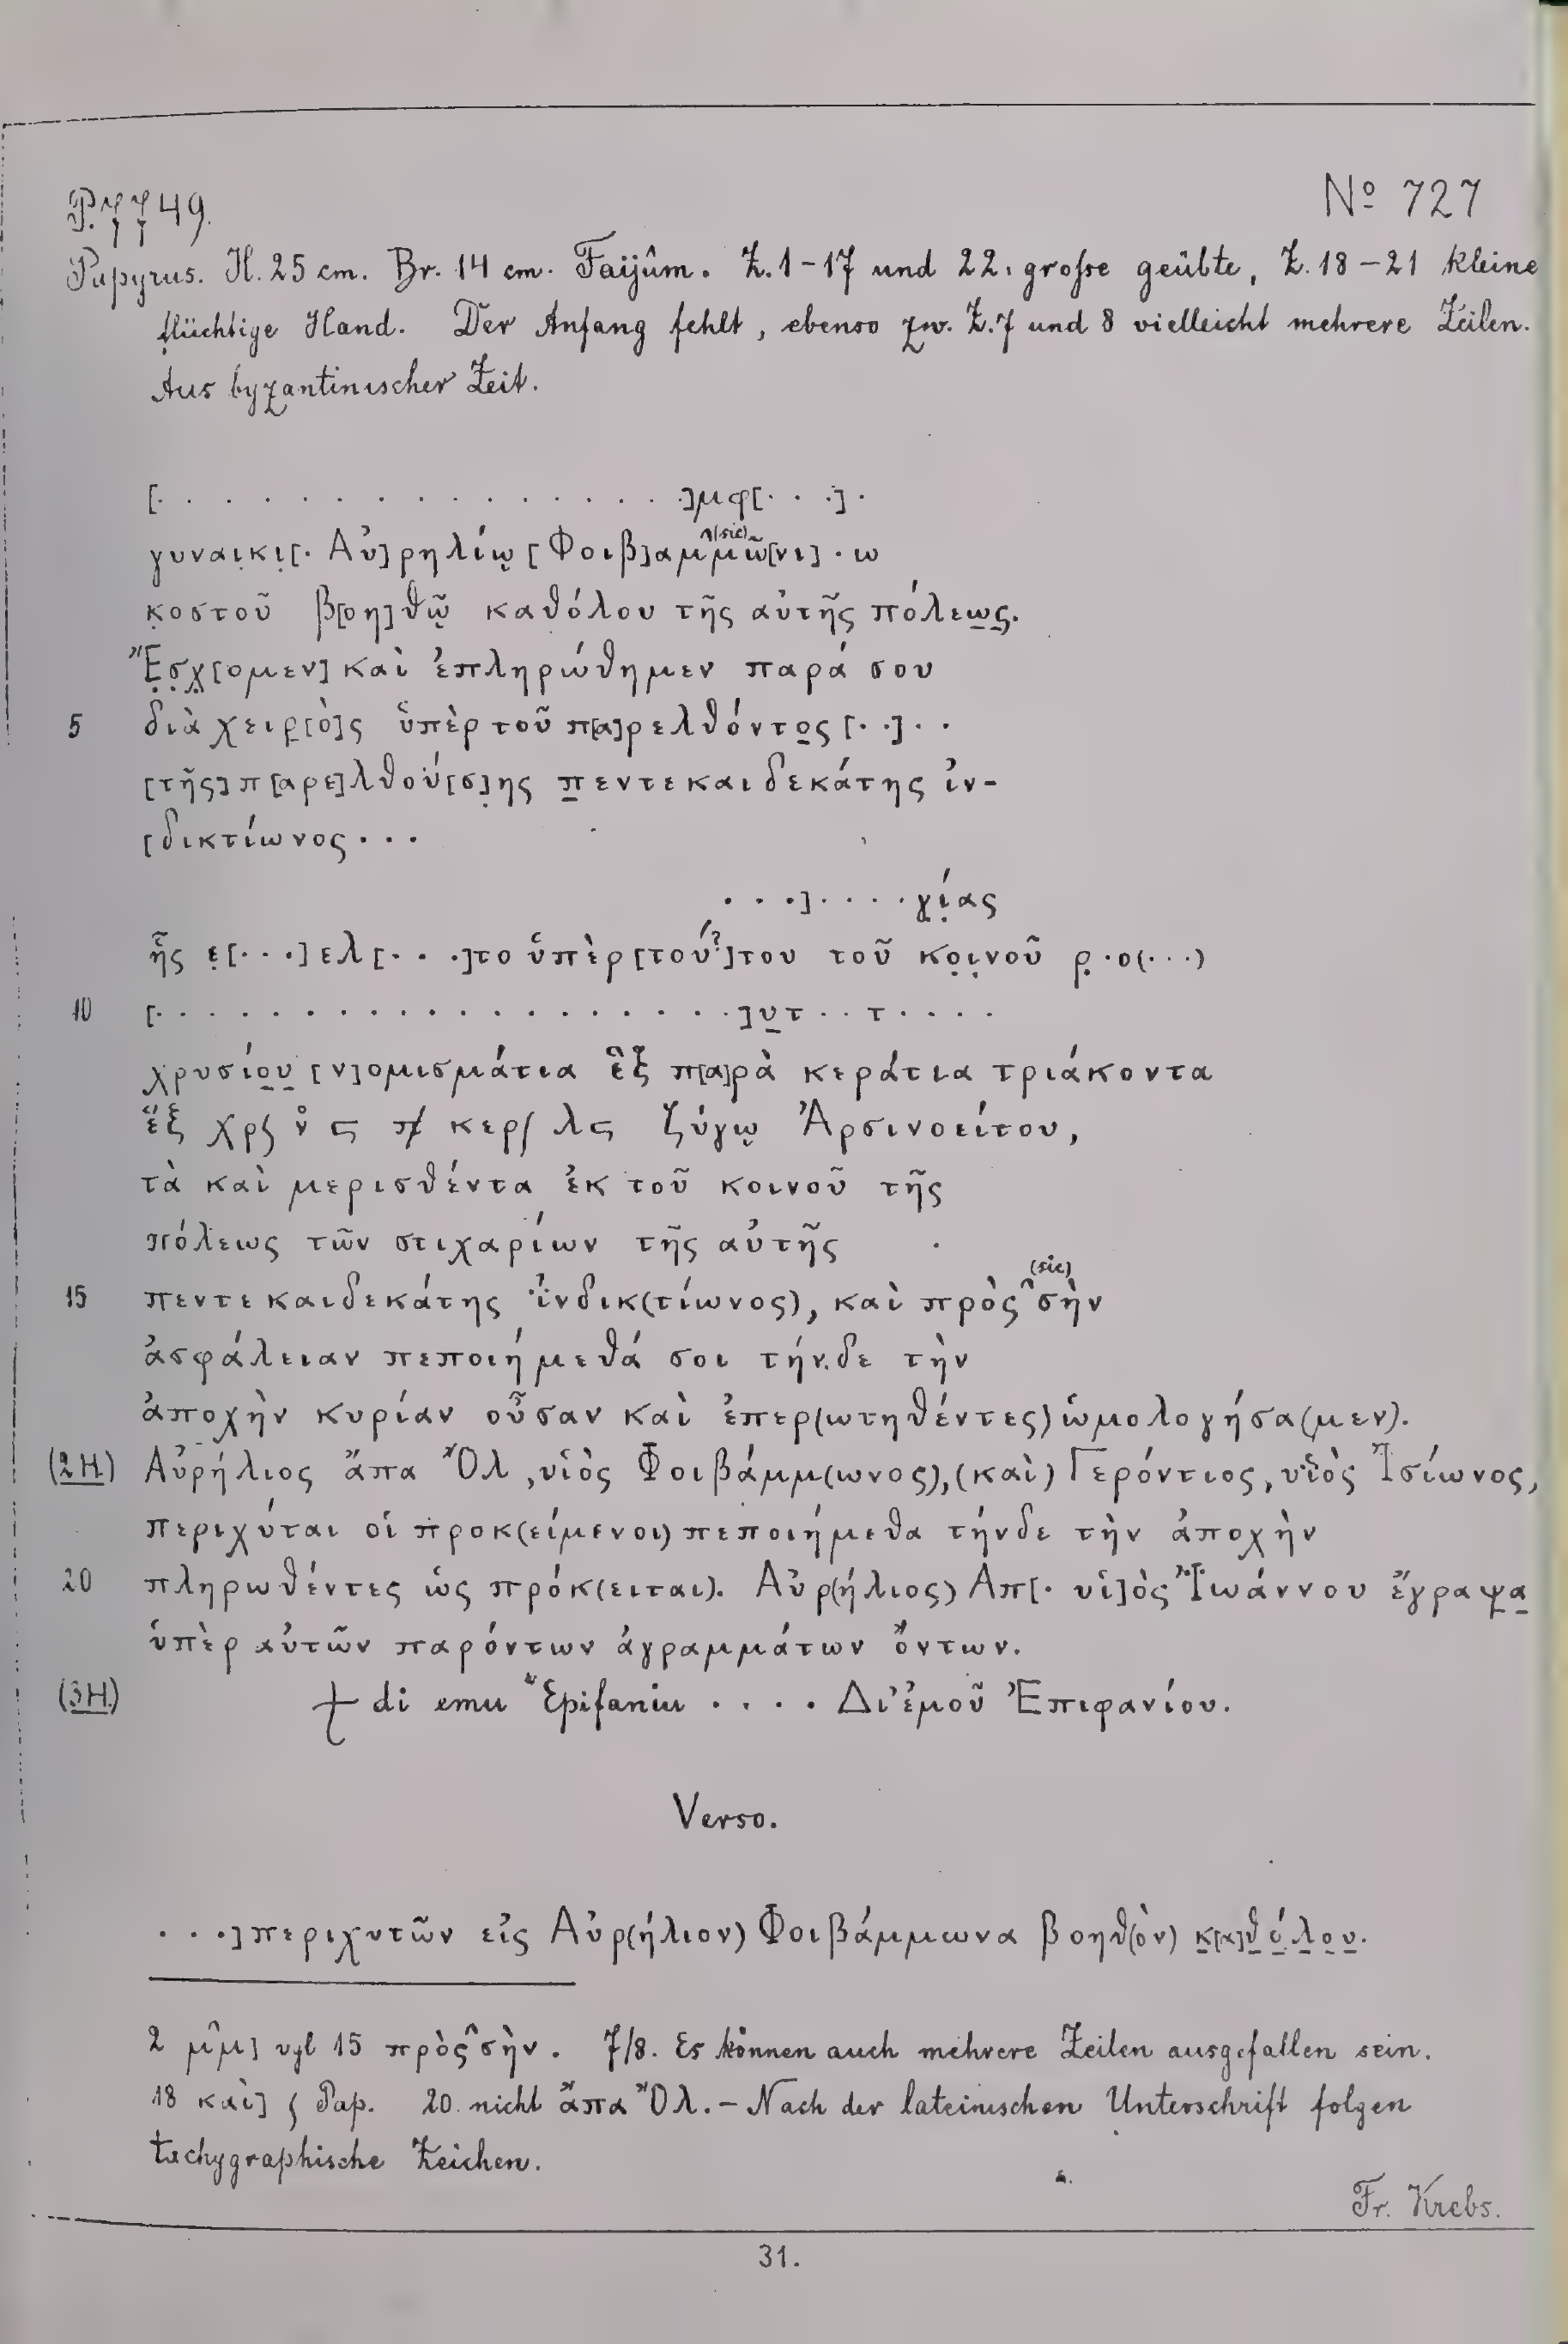 P. 7749.
Nº 727
Papyrus. H. 25 cm. Br. 14 cm. Faijûm. Z. 1-17 und 22. grosse geübte, Z. 18-21 kleine
flüchtige Hand. Der Anfang fehlt, ebenso zw. Z. 7 und 8 vielleicht mehrere Zeilen.
Aus byzantinischer Zeit.
[· · · · · · · · · · · · · · · ·]μφ[· · ·] ·
γυναικι[· Αὐ]ρηλίῳ [Φοιβ]αμ^(sic)μῶ[νι] · ω
κοστοῦ β[οη]θῷ καθόλου τῆς αὐτῆς πόλεως.
Ἔσχ[ομεν] καὶ ἐπληρώθημεν παρά σου
5 διὰ χειρ[ὸ]ς ὑπὲρ τοῦ π[α]ρελθόντος [· ·] · ·
[τῆς] π[αρε]λθού[σ]ης πεντεκαιδεκάτης ἰν-
[δικτίωνος · · ·
· · ·] · · · · γίας
ἧς ε[· · ·]ελ[· · ·]το ὑπὲρ [τού?]του τοῦ κοινοῦ ρ · ο(· · ·)
10 [· · · · · · · · · · · · · · · · · ·]υτ · · τ · · · ·
χρυσίου [ν]ομισμάτια ἓξ π[α]ρὰ κεράτια τριάκοντα
ἕξ χρ ν̊ ϛ π κερ λϛ ζύγῳ Ἀρσινοείτου,
τὰ καὶ μερισθέντα ἐκ τοῦ κοινοῦ τῆς
πόλεως τῶν στιχαρίων τῆς αὐτῆς
15 πεντεκαιδεκάτης ϊνδικ(τίωνος), καὶ πρὸς^(sic) σὴν
ἀσφάλειαν πεποιήμεθά σοι τήνδε τὴν
ἀποχὴν κυρίαν οὖσαν καὶ ἐπερ(ωτηθέντες) ὡμολογήσα(μεν).
(2H.) Αὐρήλιος ἄπα Ὂλ, υἱὸς Φοιβάμμ(ωνος), (καὶ) Γερόντιος, υἱὸς Ἰσίωνος,
περιχύται οἱ προκ(είμενοι) πεποιήμεθα τήνδε τὴν ἀποχὴν
20 πληρωθέντες ὡς πρόκ(ειται). Αὐρ(ήλιος) Απ[· υἱ]ὸς Ἰωάννου ἔγραψα
ὑπὲρ αὐτῶν παρόντων ἀγραμμάτων ὄντων.
(3H.) + di emu Epifaniu · · · · Δι' ἐμοῦ Ἐπιφανίου.
Verso.
· · ·] περιχυτῶν εἰς Αὐρ(ήλιον) Φοιβάμμωνα βοηθ(ὸν) κ[α]θόλου.
2 μ̂μ] vgl 15 πρὸς^σὴν. 7/8. Es können auch mehrere Zeilen ausgefallen sein.
18 καὶ] ϛ Pap. 20. nicht ἄπα Ὂλ. - Nach der lateinischen Unterschrift folgen
tachygraphische Zeichen.
Fr. Krebs.
31.